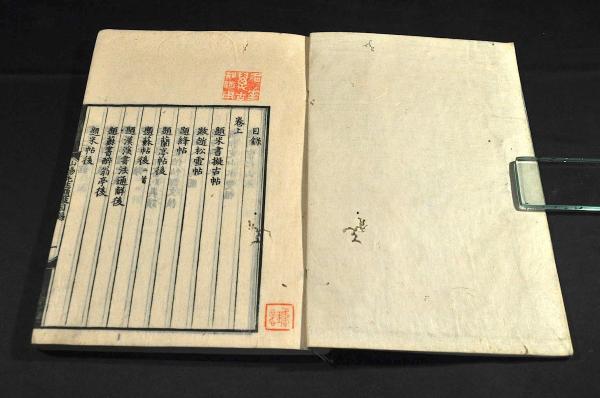 目錄
卷上
題米書擬古帖
跋趙松雪帖
題絳帖
題蘭亭帖後
題蘇帖後二首
題漢溪書法通解後
題蘇書醉翁亭後
題米帖後